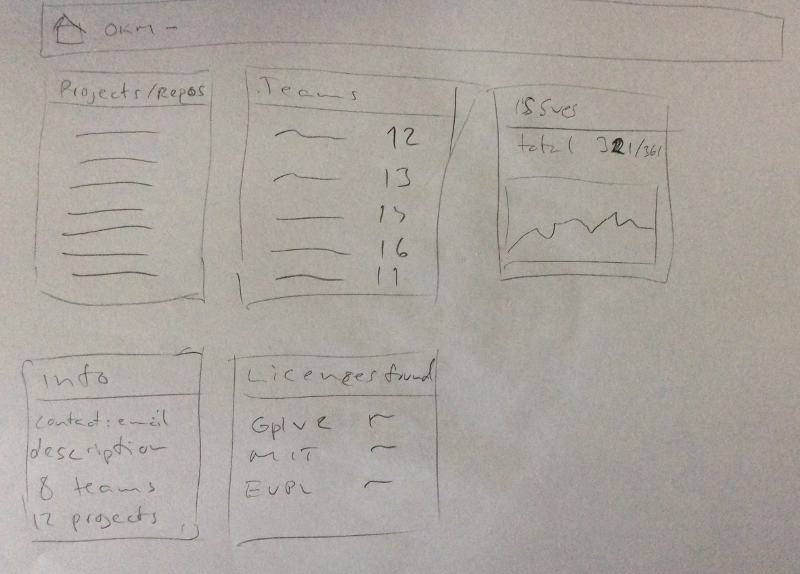 OKM -
Projects/Repos
Teams
12
13
15
16
11
issues
total 321/361
Info
contact: email
description
8 teams
12 projects
Licenses found
Gplv2
MIT
EUPL